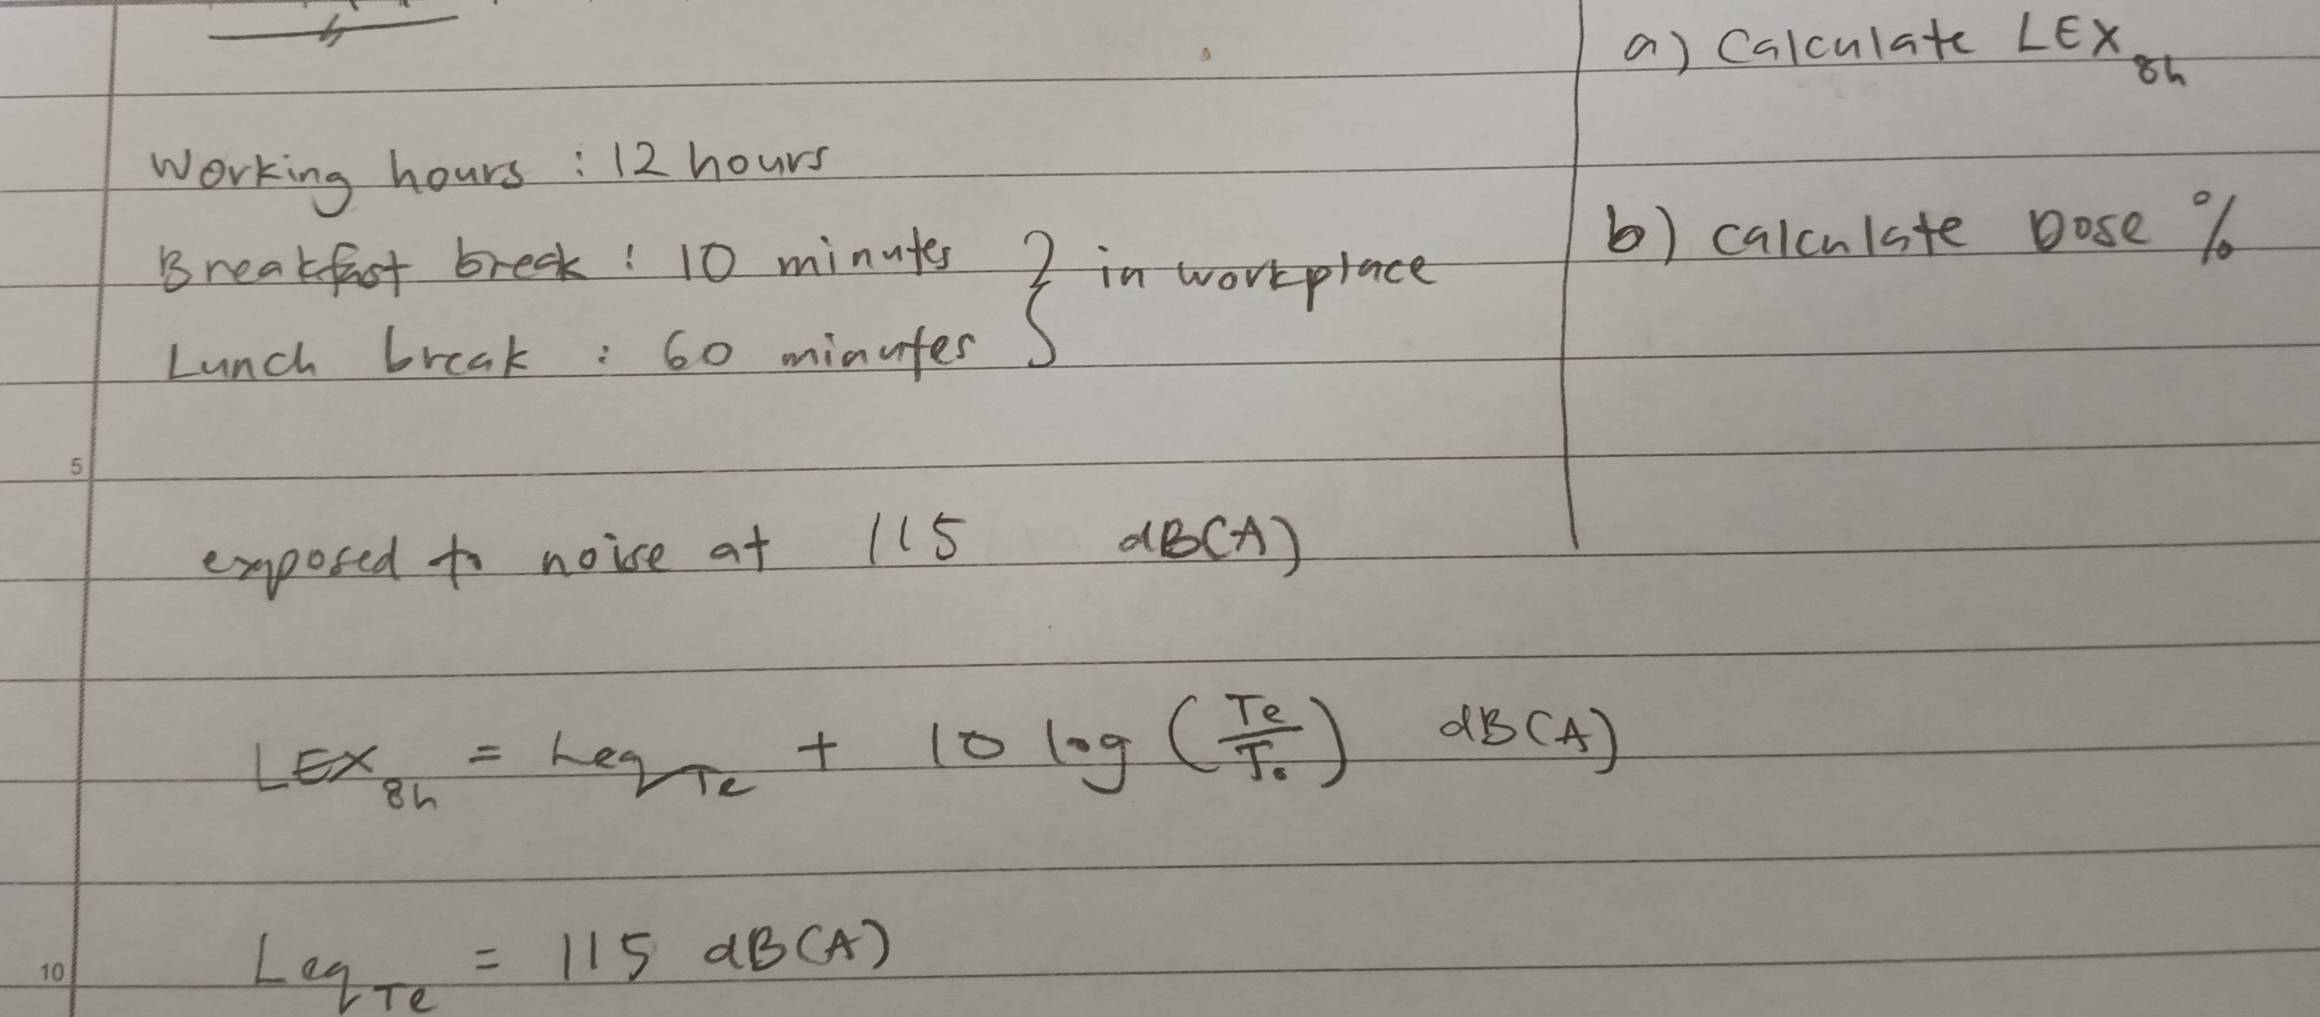 a) Calculate LEX 8h
Working hours : 12 hours
b) Calculate Dose %
Breakfast break : 10 minutes } in workplace
Lunch break : 60 minutes
5
exposed to noise at 115 dB(A)
LEX 8h = Leq Te + 10 log (Te/T₀) dB(A)
10
Leq Te = 115 dB(A)